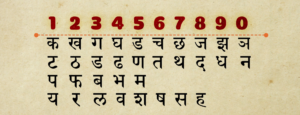 1 2 3 4 5 6 7 8 9 0
क ख ग घ ड च छ ज झ ञ
ट ठ ड ढ ण त थ द ध न
प फ ब भ म
य र ल व श ष स ह